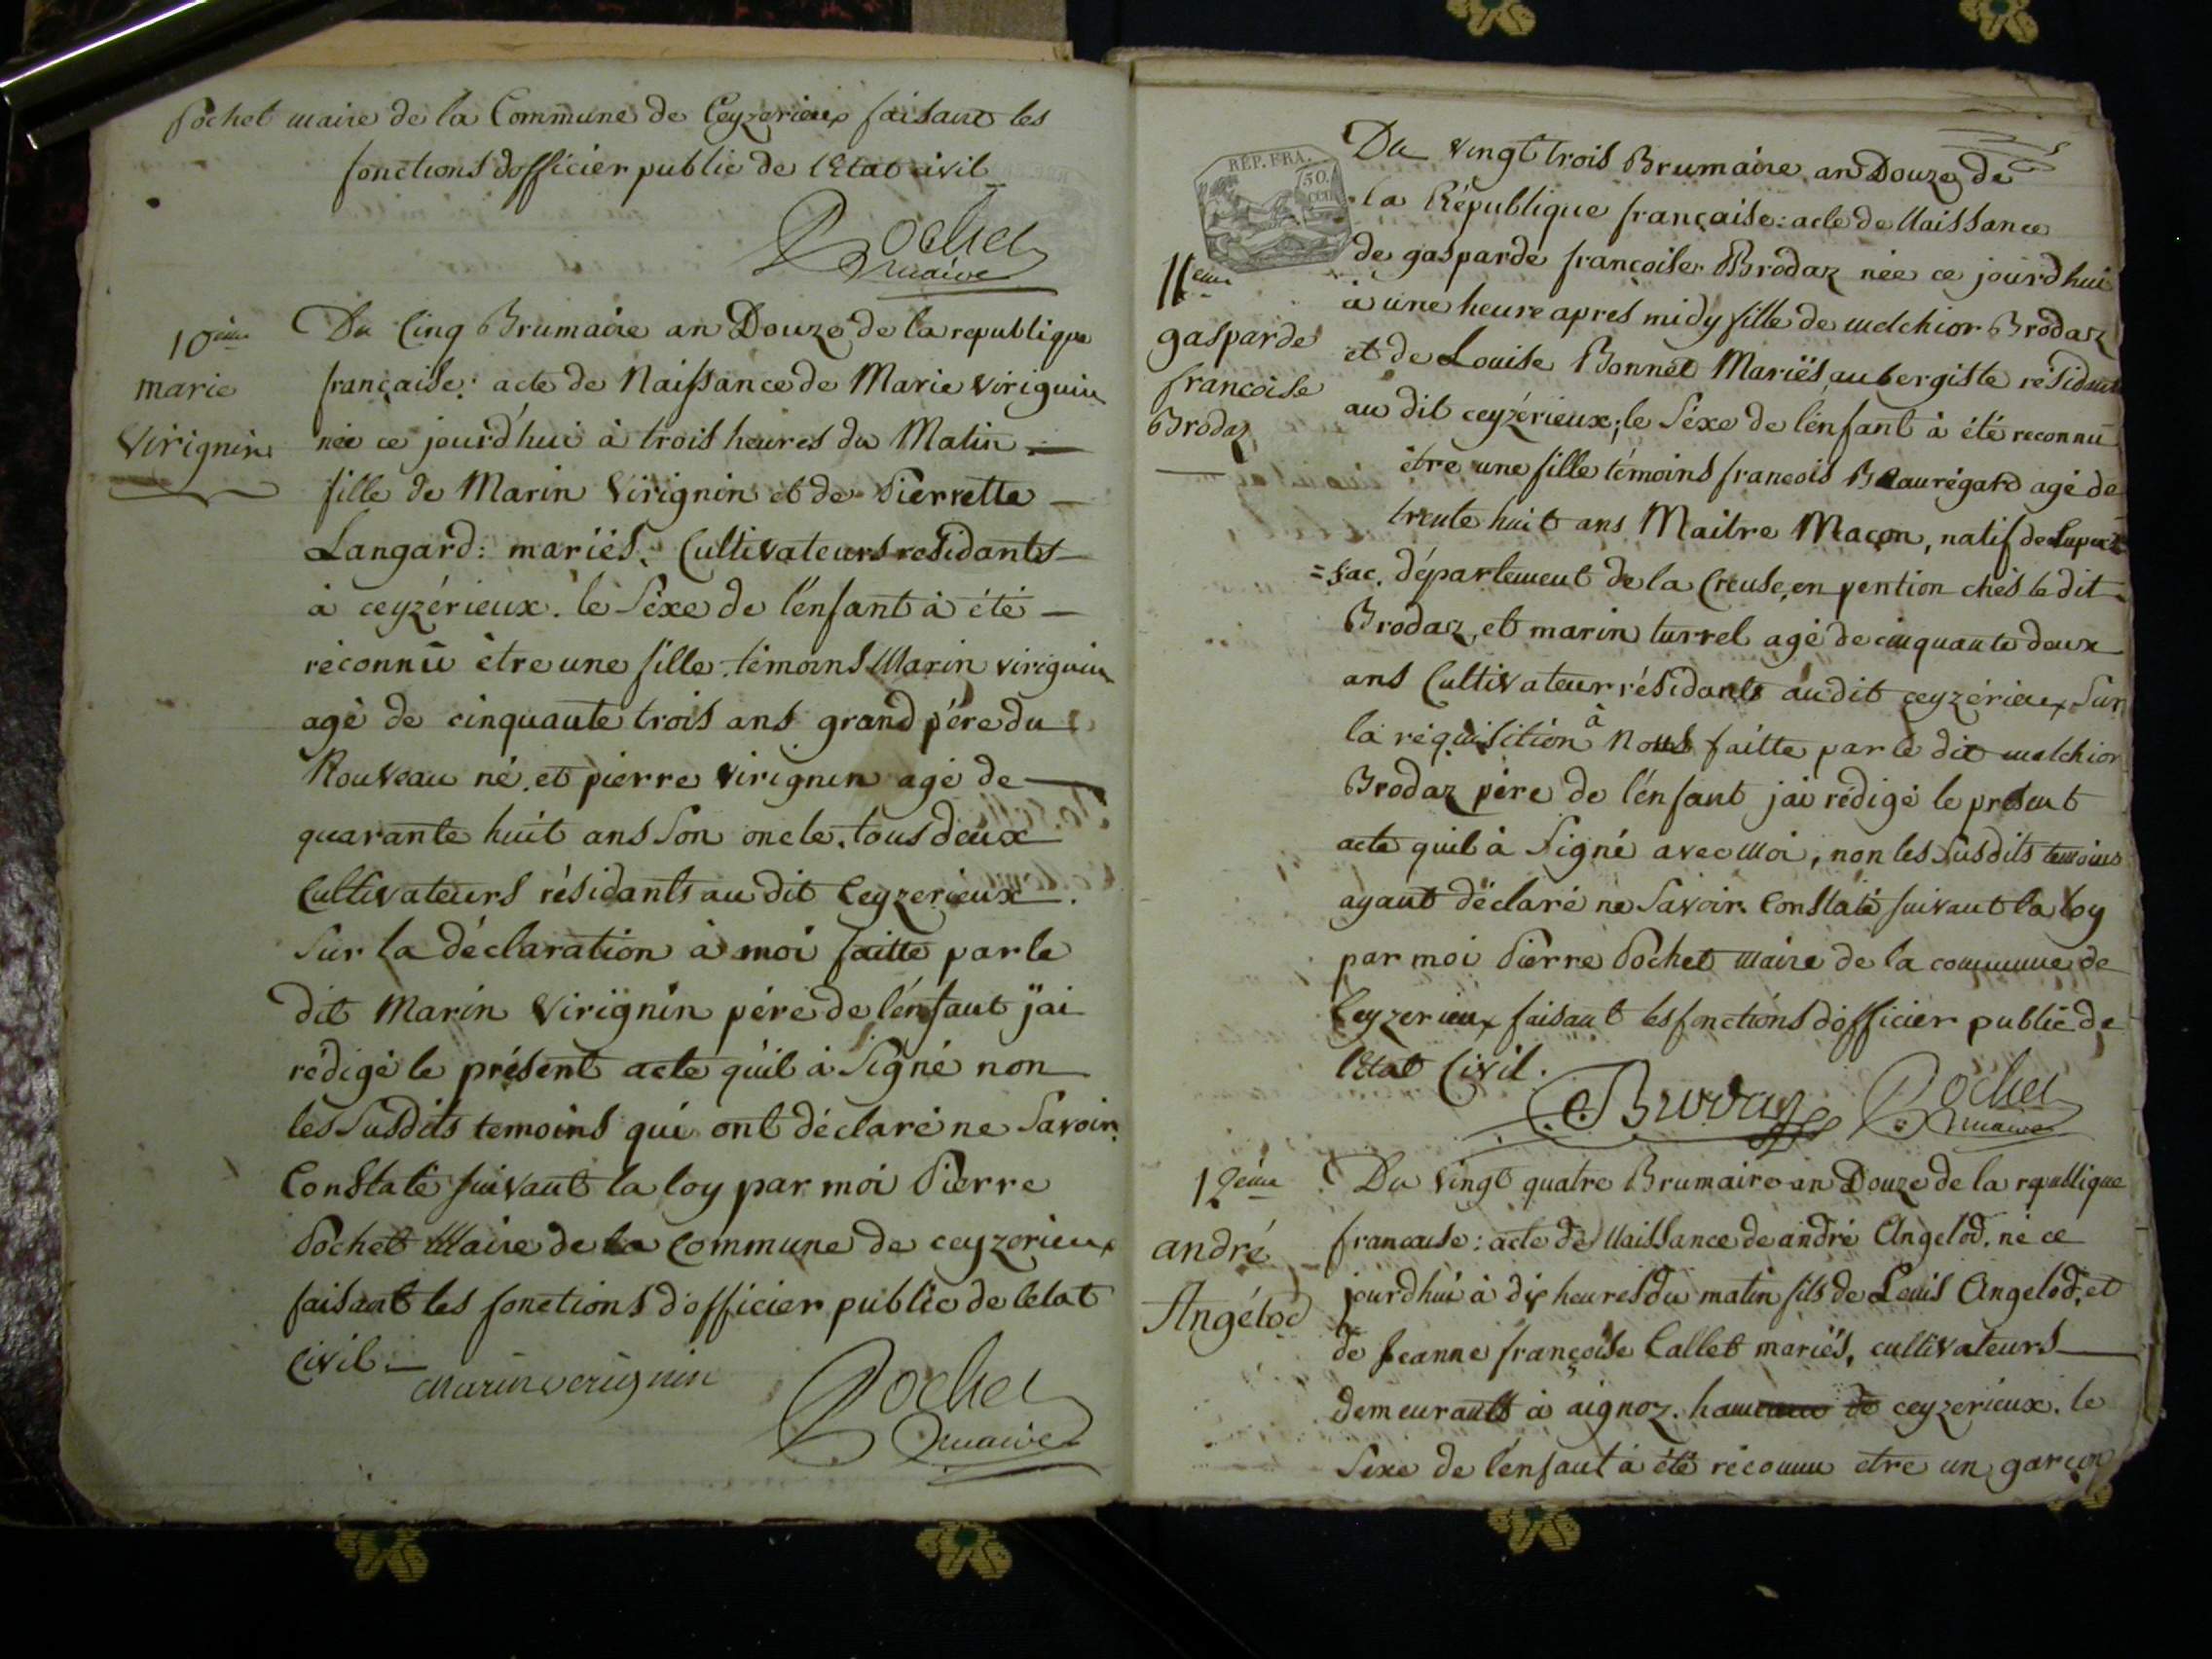 pochet maire de la Commune de Ceyzerieux faisant les
fonctions dofficier public de lEtat civil
Pochet
maire
10eme
marie
Virignin
Du Cinq Brumaire an Douze de la republique
française: acte de Naissance de Marie virignin
née ce jourd'hui à trois heures du Matin
fille de Marin Virignin et de Pierrette
Langard: mariés. Cultivateurs residants
à ceyzérieux. le Séxe de l'énfant à été
réconnu être une fille témoins Marin virignin
agé de cinquante trois ans grand pére du
Nouveau né. et pierre Virignin agé de
quarante huit ans Son oncle. tous deux
Cultivateurs résidants au dit Ceyzerieux.
Sur la déclaration à moi faitte par le
dit Marin Virignin pére de l'énfant j'ai
rédigé le présent acte qu'il à Signé non
les Susdits temoins qui ont déclaré ne Savoir.
Constaté suivant la loy par moi Pierre
Pochet Maire de la Commune de ceyzerieux
faisant les fonctions dofficier public de létat
Civil
marin verignin
Pochet
maire
REP. FRA.
50.
11eme
gasparde
francoise
Brodaz
Du Vingt trois Brumaire an Douze de
la République française: acte de Naissance
de gasparde françoise Brodaz née ce jourd'hui
à une heure aprés midy fille de melchior Brodaz
et de Louise Bonnet Mariés, aubergiste résidant
au dit ceyzérieux; le Séxe de l'énfant à été reconnu
être une fille témoins francois Beaurégard agé de
trente huit ans Maitre Maçon, natif de Lupert
=sac. département de la Creuse, en pention chés le dit
Brodaz, et marin turrel agé de cinquante deux
ans Cultivateur résidants audit ceyzérieux Sur
la réquisition à Nous faitte par le dit melchior
Brodaz pére de l'énfant j'ai rédigé le present
acte quil à Signé avec moi, non les Susdits temoins
ayant déclaré ne Savoir. Constaté suivant la loy
par moi Pierre Pochet maire de la commune de
Ceyzerieux faisant les fonctions dofficier public de
lEtat Civil.
Broday
Pochet
maire
12éme
andré
Angélod
Du Vingt quatre Brumaire an Douze de la republique
francaise: acte de Naissance de andré Angelod. né ce
jourdhui à dix heures du matin fils de Louis Angelod, et
de Jeanne françoise Callet mariés, cultivateurs
demeurants à aignoz. hameau de ceyzerieux. le
Sexe de l'énfant à été réconnu etre un garçon